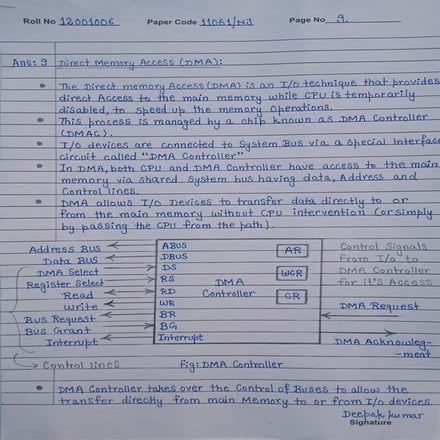 Roll No 12001006 Paper Code 11061/NJ Page No 9.
Ans: 9 Direct Memory Access (DMA):
• The Direct memory Access (DMA) is an I/o technique that provides
direct Access to the main memory while CPU is temporarily
disabled, to speed up the memory Operations.
• This process is managed by a chip known as DMA Controller
(DMAC).
• I/o devices are connected to System Bus via a special Interface
circuit called "DMA Controller"
• In DMA, both CPU and DMA Controller have access to the main
memory via shared System bus having data, Address and
Control lines.
• DMA allows I/o Devices to transfer data directly to or
from the main memory without CPU intervention (or simply
by passing the CPU from the path).
Address Bus ABUS AR Control Signals
Data Bus DBUS from I/o to
DMA Select DS WCR DMA Controller
Register Select RS DMA for it's Access
Read RD Controller CR
Write WR DMA Request
Bus Request BR
Bus Grant BG
Interrupt Interrupt DMA Acknowleg-
-ment
Control lines Fig: DMA Controller
• DMA Controller takes over the Control of Buses to allow the
transfer directly from main Memory to or from I/o devices.
Deepak kumar
Signature